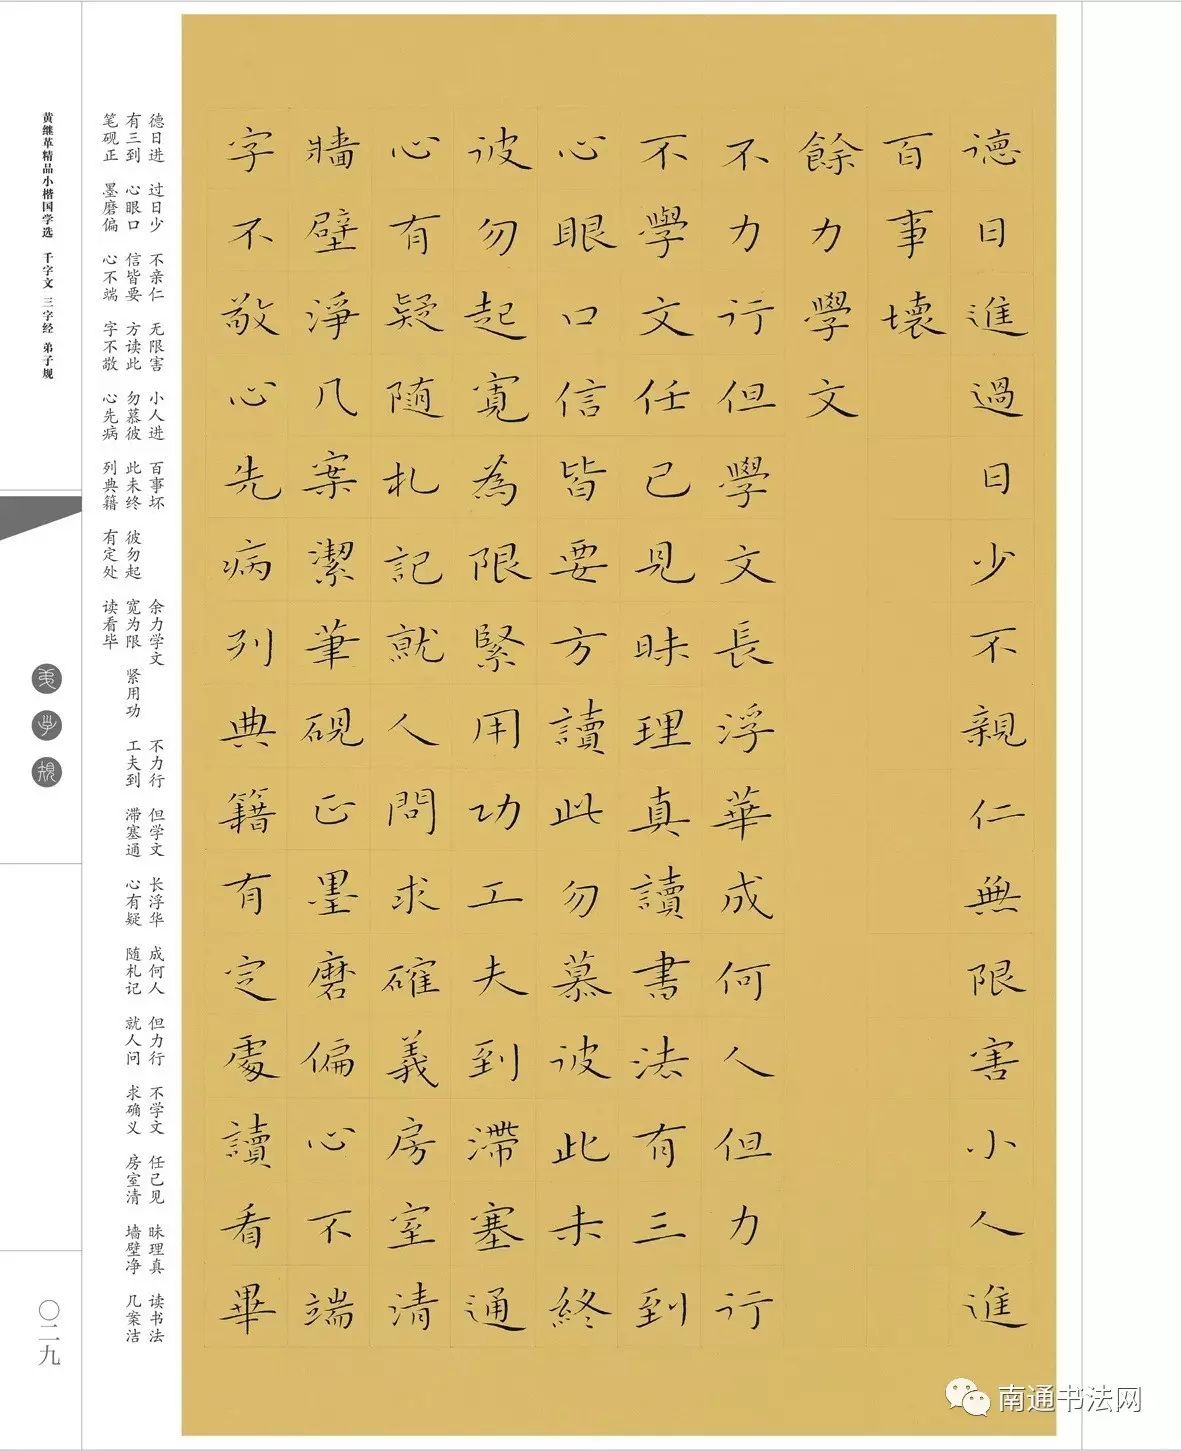 德日進過日少不親仁無限害小人進
百事壞
餘力學文
不力行但學文長浮華成何人但力行
不學文任己見昧理真讀書法有三到
心眼口信皆要方讀此勿慕彼此未終
彼勿起寬為限緊用功工夫到滯塞通
心有疑隨札記就人問求確義房室清
牆壁淨几案潔筆硯正墨磨偏心不端
字不敬心先病列典籍有定處讀看畢
德日进 过日少 不亲仁 无限害 小人进 百事坏 余力学文 不力行 但学文 长浮华 成何人 但力行 不学文 任己见 昧理真 读书法
有三到 心眼口 信皆要 方读此 勿慕彼 此未终 彼勿起 宽为限 紧用功 工夫到 滞塞通 心有疑 随札记 就人问 求确义 房室清 墙壁净 几案洁
笔砚正 墨磨偏 心不端 字不敬 心先病 列典籍 有定处 读看毕
黄继革精品小楷国学选 千字文 三字经 弟子规
弟子規
〇二九
南通书法网